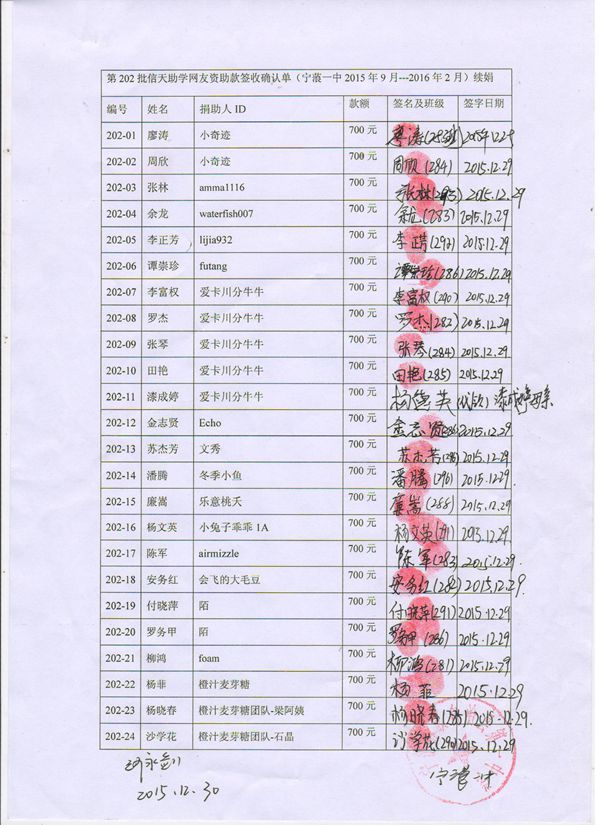 第 202 批信天助学网友资助款签收确认单（宁蒗一中 2015 年 9 月---2016 年 2 月）续娟
编号 姓名 捐助人 ID 款额 签名及班级 签字日期
202-01 廖涛 小奇迹 700 元 廖涛 2015年12.29
202-02 周欣 小奇迹 700 元 周欣(284) 2015.12.29
202-03 张林 amma1116 700 元 张林(293) 2015.12.29
202-04 余龙 waterfish007 700 元 余龙(283) 2015.12.29
202-05 李正芳 lijia932 700 元 李正芳(292) 2015.12.29
202-06 谭崇珍 futang 700 元 谭崇珍(286) 2015.12.29
202-07 李富权 爱卡川分牛牛 700 元 李富权(290) 2015.12.29
202-08 罗杰 爱卡川分牛牛 700 元 罗杰(282) 2015.12.29
202-09 张琴 爱卡川分牛牛 700 元 张琴(284) 2015.12.29
202-10 田艳 爱卡川分牛牛 700 元 田艳(285) 2015.12.29
202-11 漆成婷 爱卡川分牛牛 700 元 杨 英 漆成婷母亲
202-12 金志贤 Echo 700 元 金志贤(286) 2015.12.29
202-13 苏杰芳 文秀 700 元 苏杰芳 2015.12.29
202-14 潘腾 冬季小鱼 700 元 潘腾(296) 2015.12.29
202-15 廉嵩 乐意桃夭 700 元 廉嵩(288) 2015.12.29
202-16 杨文英 小兔子乖乖 1A 700 元 杨文英 2013.12.29
202-17 陈军 airmizzle 700 元 陈军(283) 2015.12.29
202-18 安务红 会飞的大毛豆 700 元 安务红(282) 2015.12.29
202-19 付晓萍 陌 700 元 付晓萍(291) 2015.12.29
202-20 罗务甲 陌 700 元 罗务甲(286) 2015.12.29
202-21 柳鸿 foam 700 元 柳鸿(281) 2015.12.29
202-22 杨菲 橙汁麦芽糖 700 元 杨菲 2015.12.29
202-23 杨晓春 橙汁麦芽糖团队-梁阿姨 700 元 杨晓春(285) 2015.12.29.
202-24 沙学花 橙汁麦芽糖团队-石晶 700 元 沙学花(290) 2015.12.29
2015.12.30